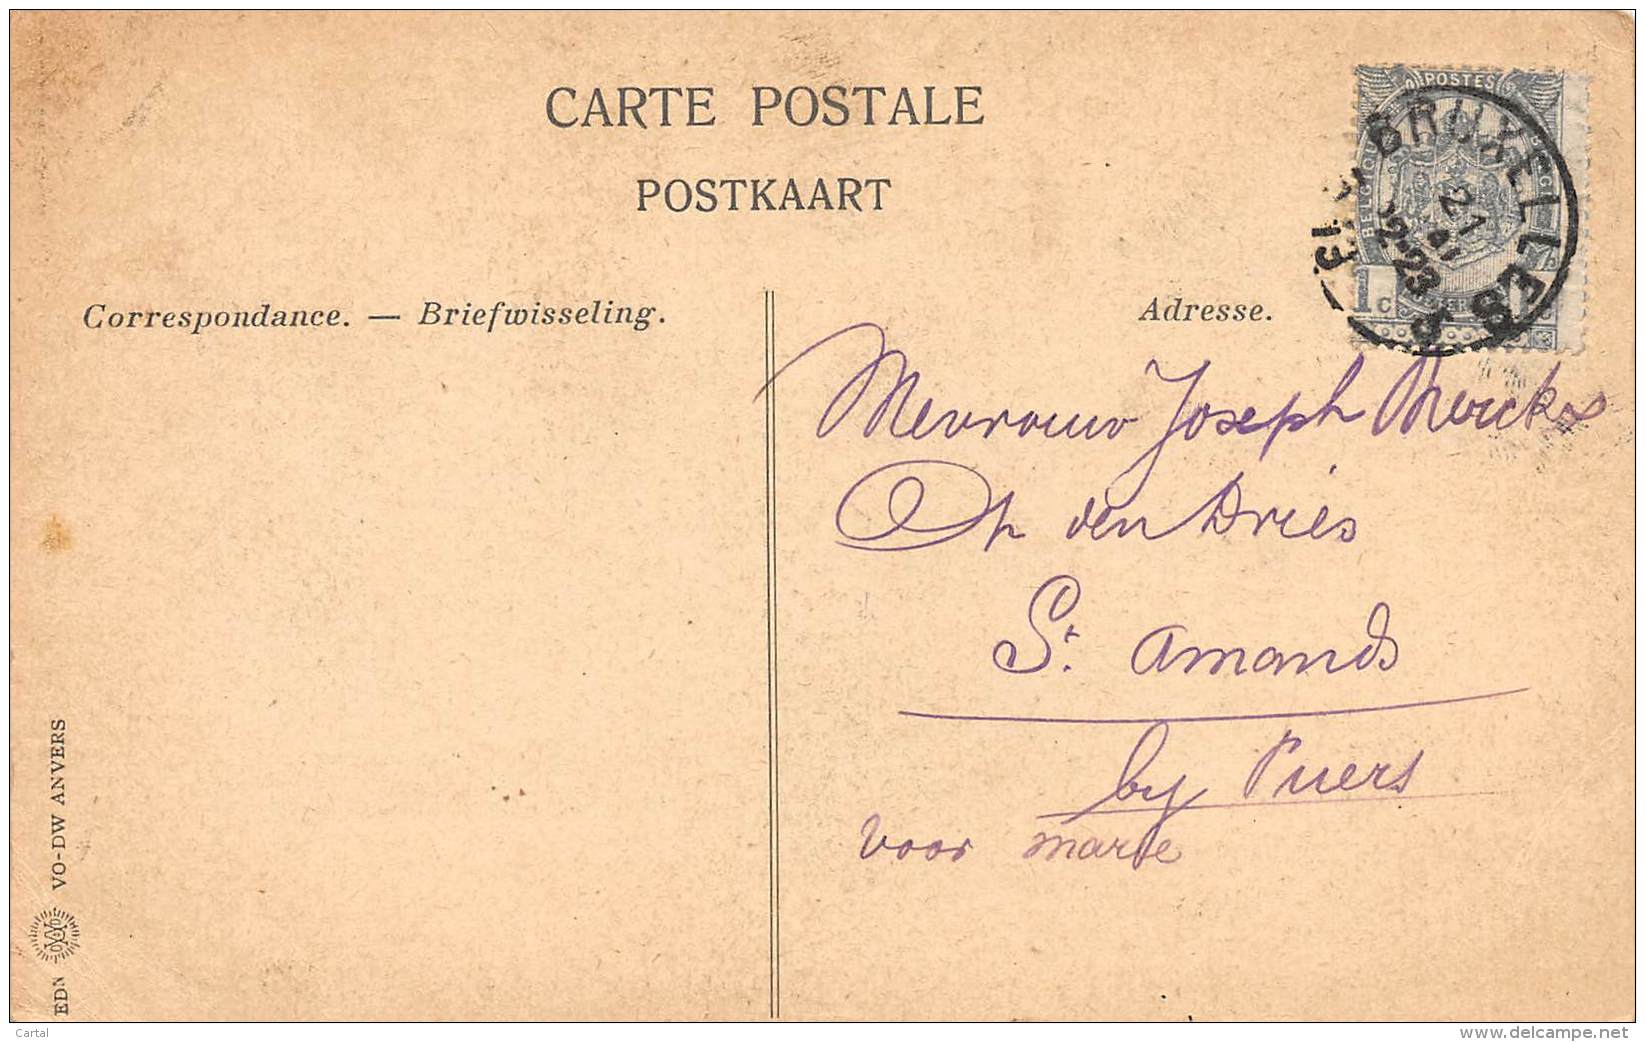 CARTE POSTALE
POSTKAART
Correspondance. — Briefwisseling.
Adresse.
POSTES
BRUXELLES
21
22-23
1 C
Mevrouw Joseph Merckx
Op den Dries
St. Amands
by Puers
voor marie
EDN VO-DW ANVERS
Cartal
www.delcampe.net